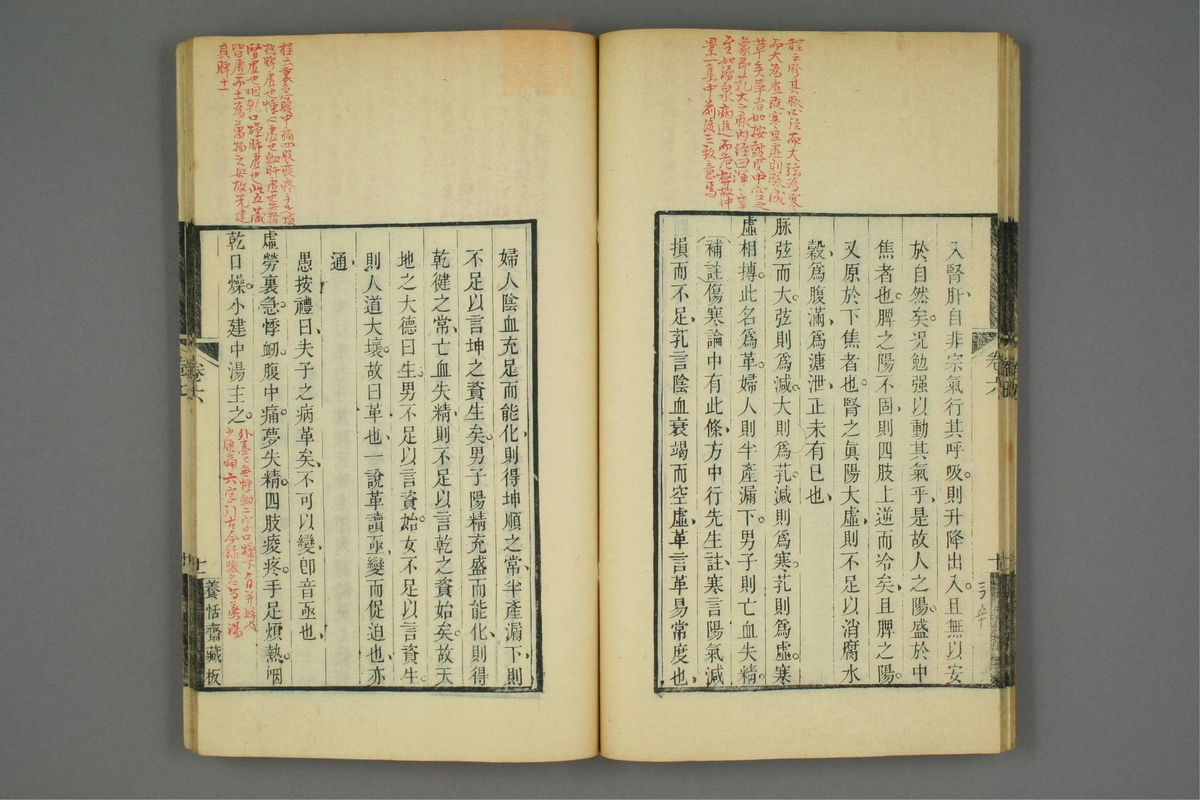 入腎肝自非宗氣行其呼吸則升降出入且無以安
於自然矣況勉强以動其氣乎是故人之陽盛於中
焦者也脾之陽不固則四肢上逆而冷矣且脾之陽
又原於下焦者也腎之眞陽大虛則不足以消腐水
穀爲腹滿爲溏泄正未有已也
脉弦而大弦則爲減大則爲芤減則爲寒芤則爲虛寒
虛相搏此名爲革婦人則半產漏下男子則亡血失精
補註傷寒論中有此條方中行先生註寒言陽氣減
損而不足芤言陰血衰竭而空虛革言革易常度也
卷六
十
婦人陰血充足而能化則得坤順之常半產漏下則
不足以言坤之資生矣男子陽精充盛而能化則得
乾健之常亡血失精則不足以言乾之資始矣故天
地之大德曰生男不足以言資始女不足以言資生
則人道大壞故曰革也一說革讀亟變而促迫也亦
通
愚按禮曰夫子之病革矣不可以變卽音亟也
虛勞裏急悸衂腹中痛夢失精四肢痠疼手足煩熱咽
乾口燥小建中湯主之
卷六
十一
養恬齋藏板
程云裏急腹中痛四肢痠疼手足煩
熱脾虛也悸心虛也衂肝虛也失精
腎虛也咽乾口燥肺虛也此五藏
皆虛而土爲萬物之母故先建
其脾土